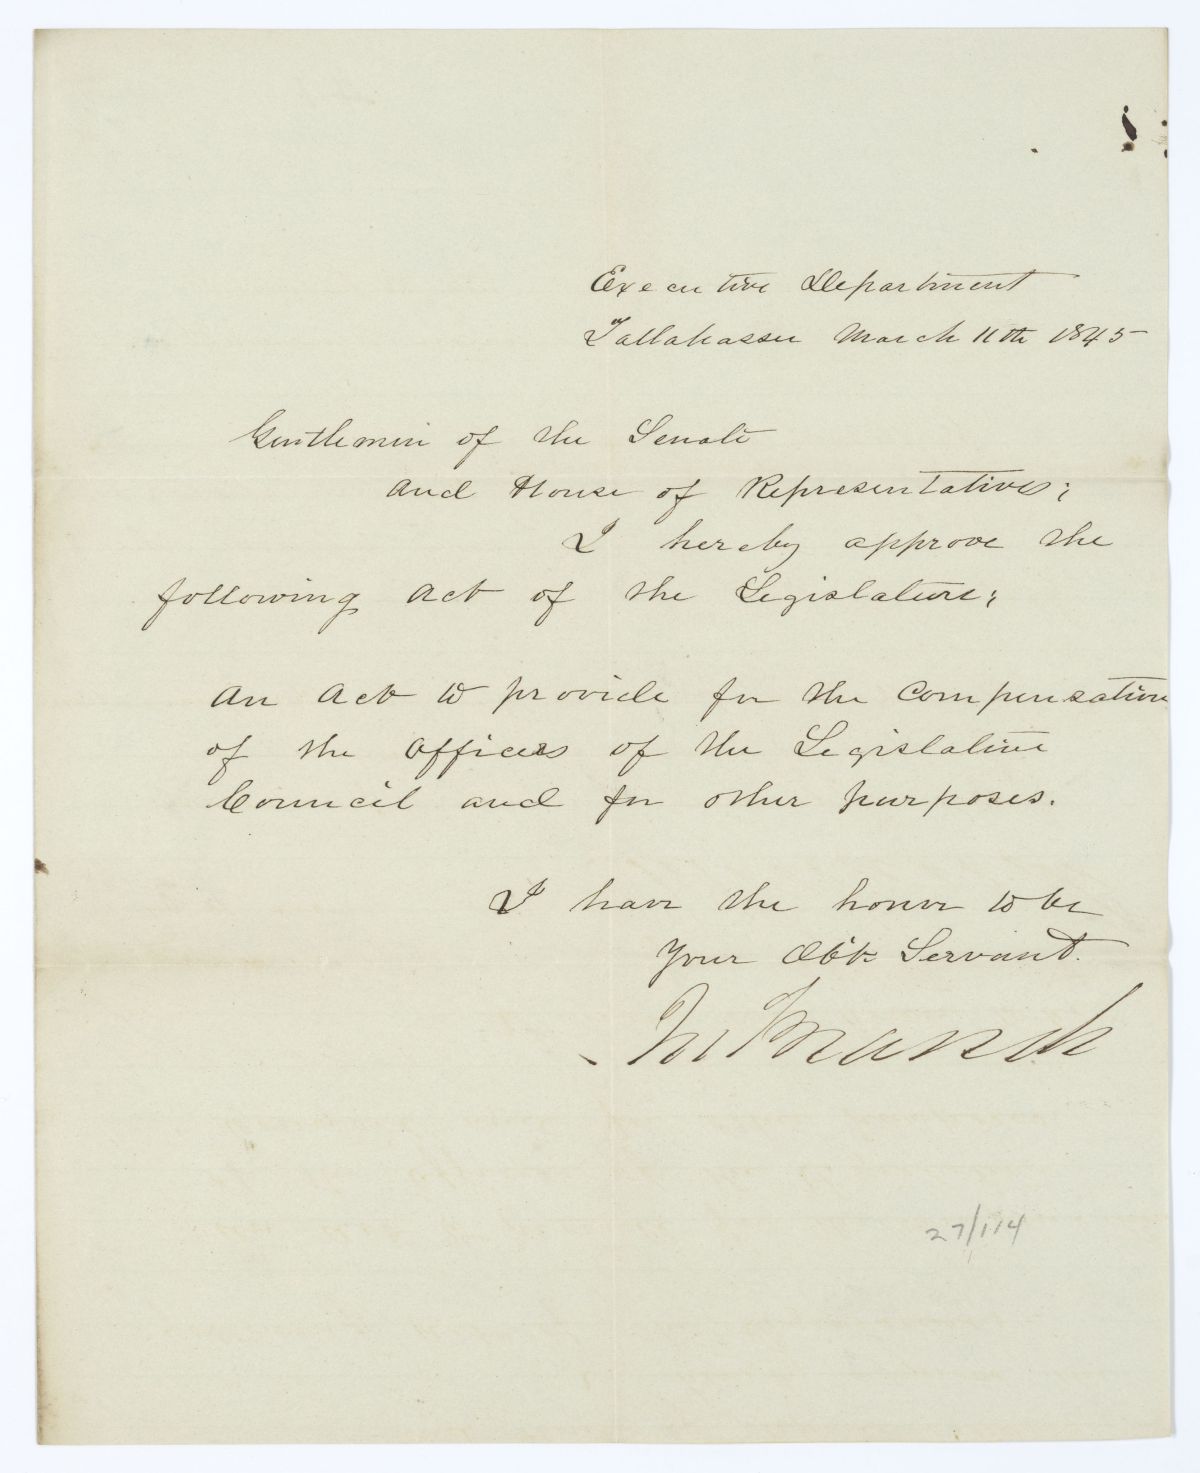 Executive Department
Tallahassee March 11th 1845
Gentlemen of the Senate
and House of Representatives;
I hereby approve the
following Act of the Legislature;
An Act to provide for the Compensation
of the Officers of the Legislative
Council and for other purposes.
I have the honor to be
Your Obt Servant.
Jn Branch
27/114